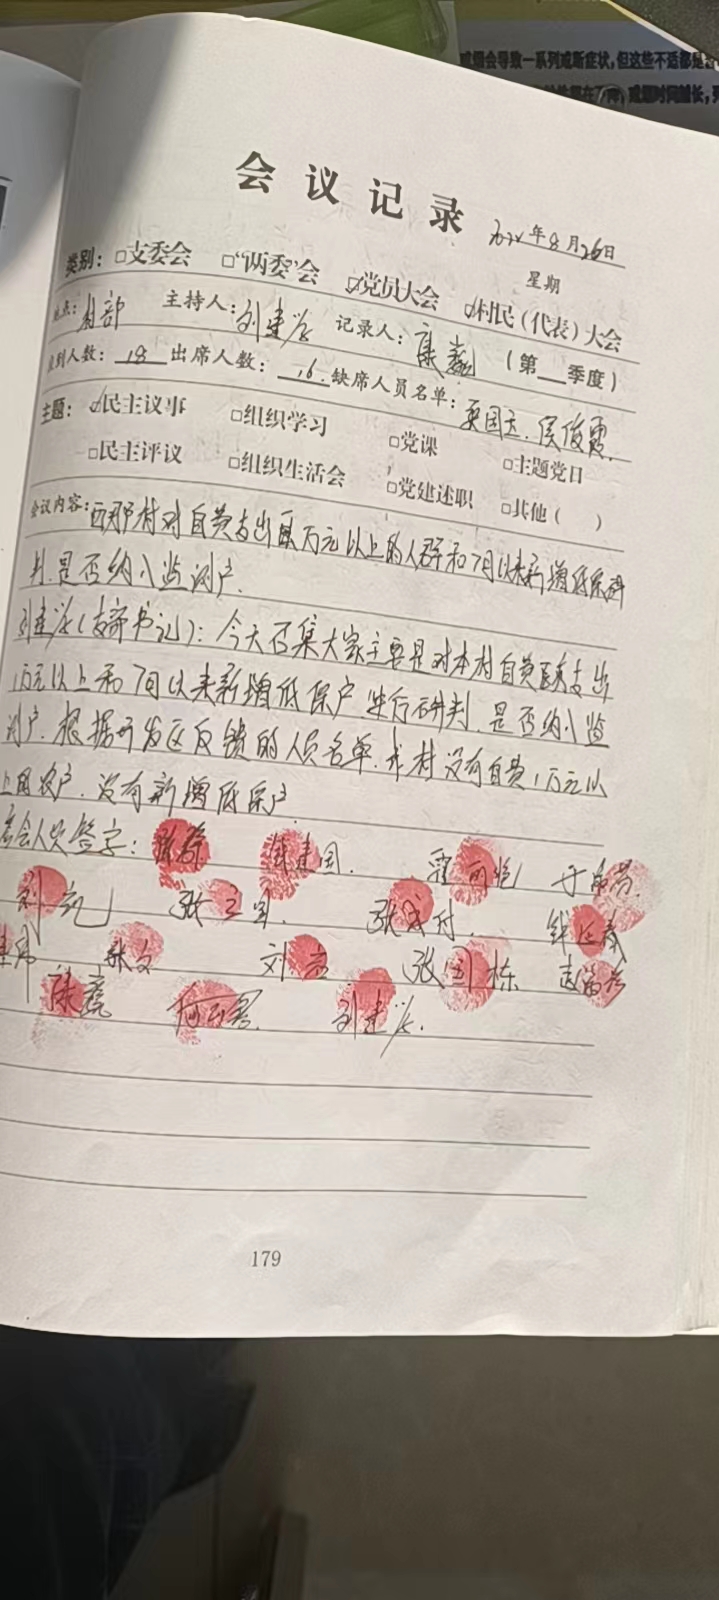 戒烟会导致一系列戒断症状,但这些不适都是
戒烟时间越长,
会议记录
年8月26日
星期
类别:□支委会 □“两委”会 ☑党员大会 ☑村民(代表)大会
地点:村部 主持人:刘建兴 记录人:康巍 (第 季度)
应到人数:18 出席人数:16 缺席人员名单:国主、侯俊霞
主题:☑民主议事 □组织学习 □党课 □主题党日
□民主评议 □组织生活会 □党建述职 □其他( )
会议内容:西那村对自费支出万元以上的人群和7月以来新增低保研
判,是否纳入监测户.
刘建兴(支部书记):今天召集大家主要是对本村自费医疗支出
1万元以上和7月以来新增低保户进行研判,是否纳入监
测户.根据开发区反馈的人员名单,我村没有自费1万元以
上的农户,没有新增低保户
参会人员签字: 建国.
刘 张立国. 张成付.
张文 刘 张国栋
康巍 刘建兴.
179